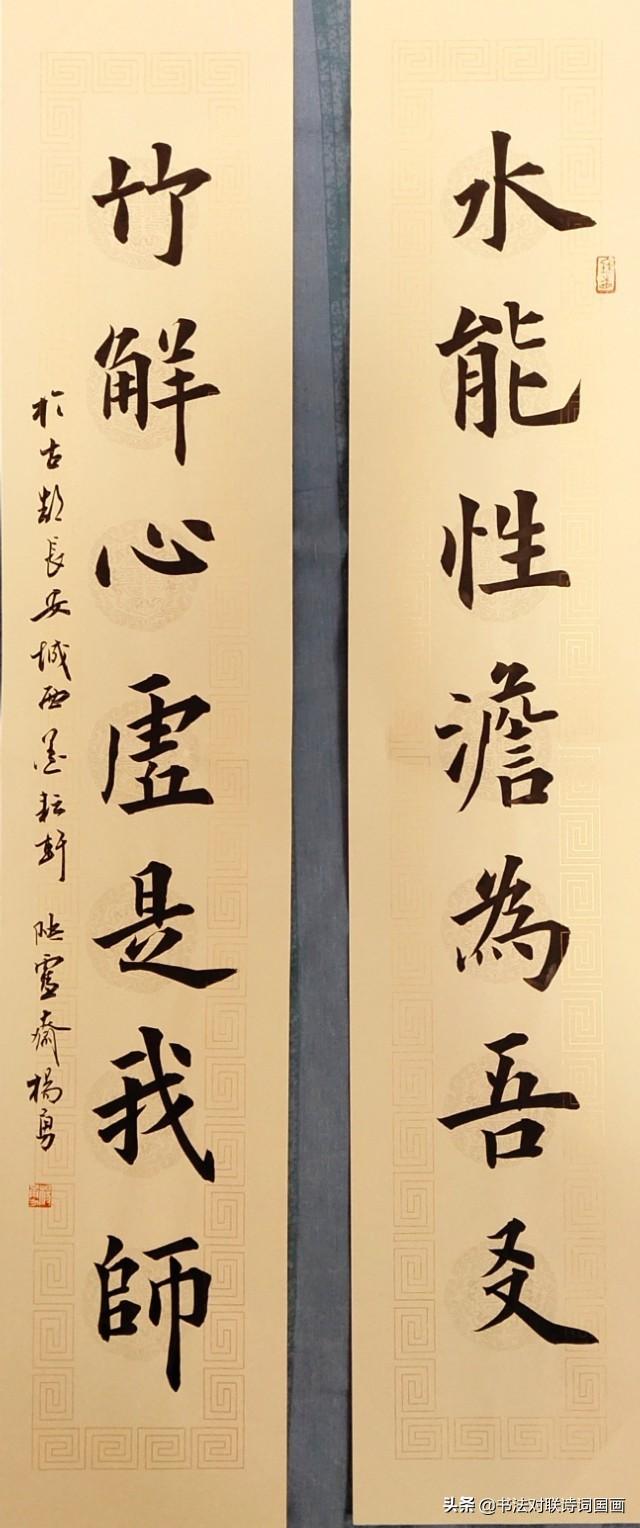 水能性澹為吾友
竹解心虚是我師
於古都長安城西墨耘軒 陋室齋楊勇
头条 @书法对联诗词国画